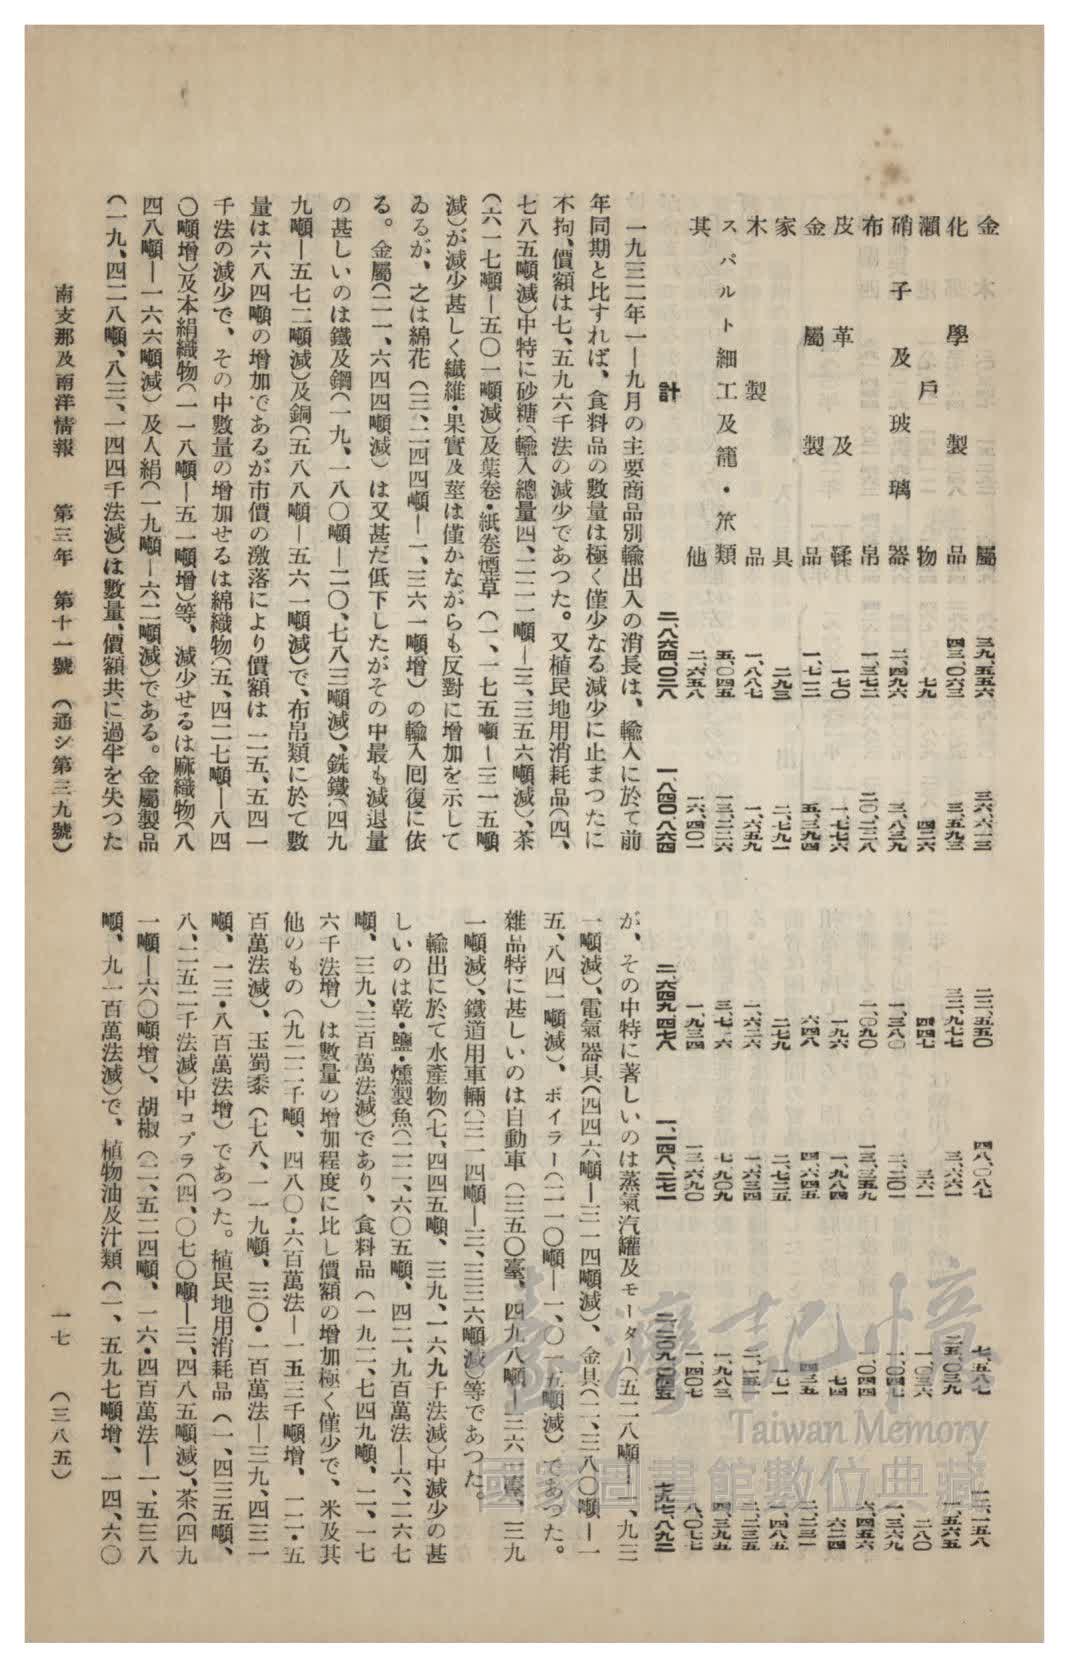 金屬 三九、五五六 三六、六一三 二二、五五〇 四八、〇八七 七、五八七 一二、一五八
化學製品 四三、〇六三 三、五九三 三二、九七七 三、六六一 二五、〇三九 一、五六五
瀨戶物 七九 四二六 四四七 三六一 一、〇三六 二八〇
硝子及玻璃器 二、四九六 三、八三九 一、三八〇 二、二〇一 一、〇四七 一、三六九
布帛 一、三七二 二〇、二二八 一、〇九〇 一三、三五九 一、〇四四 六、四五六
皮革及鞣 一七〇 一、七七六 一九六 一、九八四 七四 六二四
金屬製品 一、七二二 五、三九四 六四八 四、六四五 四三五 二、二三一
家具 二九三 二、七九一 二七九 二、七二五 一七一 一、四八五
木製品 一、八八七 一、六五九 一、六二六 一、六三四 二、一五一 二、二三五
スパルト細工及籠・笊類 五、〇四五 一三、二二六 三、七一六 七、九〇九 一、九八三 四、三九五
其他 二、六五八 一六、四〇一 一、九三四 一三、六九〇 一、四〇七 八、〇七七
計 二、八六四、〇二八 一、八四〇、八六四 二、六四九、四七八 一、一四八、二七一 二、二〇九、〇四五 七九七、八九二
一九三二年一―九月の主要商品別輸出入の消長は、輸入に於て前
年同期と比すれば、食料品の數量は極く僅少なる減少に止まつたに
不拘、價額は七、五九六千法の減少であつた。又植民地用消耗品(四、
七八五噸減)中特に砂糖(輸入總量四、二二一噸―三、三五六噸減)、茶
(六一七噸―五〇一噸減)及葉卷・紙卷煙草(一、一七五噸―三一五噸
減)が減少甚しく纎維・果實及莖は僅かながらも反對に增加を示して
ゐるが、之は綿花(三、二四四噸―一、三六一噸增)の輸入囘復に依
る。金屬(二一、六四四噸減)は又甚だ低下したがその中最も減退量
の甚しいのは鐵及鋼(一九、一八〇噸―二〇、七八三噸減)、銑鐵(四九
九噸―五七二噸減)及銅(五八八噸―五六一噸減)で、布帛類に於て數
量は六八四噸の增加であるが市價の激落により價額は一二五、五四一
千法の減少で、その中數量の增加せるは綿織物(五、四二七噸―八四
〇噸增)及本絹織物(一一八噸―五一噸增)等、減少せるは麻織物(八
四八噸―一六六噸減)及人絹(一九噸―六二噸減)である。金屬製品
(一九、四二八噸、八三、一四四千法減)は數量、價額共に過半を失つた
が、その中特に著しいのは蒸氣汽罐及モーター(五二八噸―一、九三
一噸減)、電氣器具(四四六噸―三一四噸減)、金具(二、三八〇噸―一
五、八四一噸減)、ボイラー(二一〇噸―一、〇一五噸減)であつた。
雜品特に甚しいのは自動車(三五〇臺、四九八噸―三六一臺、三九
一噸減)、鐵道用車輛(三一四噸―三、三三六噸減)等であつた。
輸出に於て水產物(七、四四五噸、三九、一六九千法減)中減少の甚
しいのは乾・鹽・燻製魚(二二、六〇五噸、四二、九百萬法―六、二六七
噸、三九、三百萬法減)であり、食料品(一九二、七四九噸、二、一七
六千法增)は數量の增加程度に比し價額の增加極く僅少で、米及其
他のもの(九二二千噸、四八〇・六百萬法―一五三千噸增、一二・五
百萬法減)、玉蜀黍(七八、一一九噸、三〇・一百萬法―三九、四三一
噸、一三・八百萬法增)であつた。植民地用消耗品(一、四三五噸、
八、二五二千法減)中コプラ(四、〇七〇噸―三、四八五噸減)、茶(四九
一噸―六〇噸增)、胡椒(二、五二四噸、一六・四百萬法―一、五三八
噸、九一百萬法減)で、植物油及汁類(一、五九七噸增、一四、六〇
南支那及南洋情報 第三年 第十一號 (通シ第三九號) 一七 (三八五)
臺灣記憶
Taiwan Memory
國家圖書館數位典藏